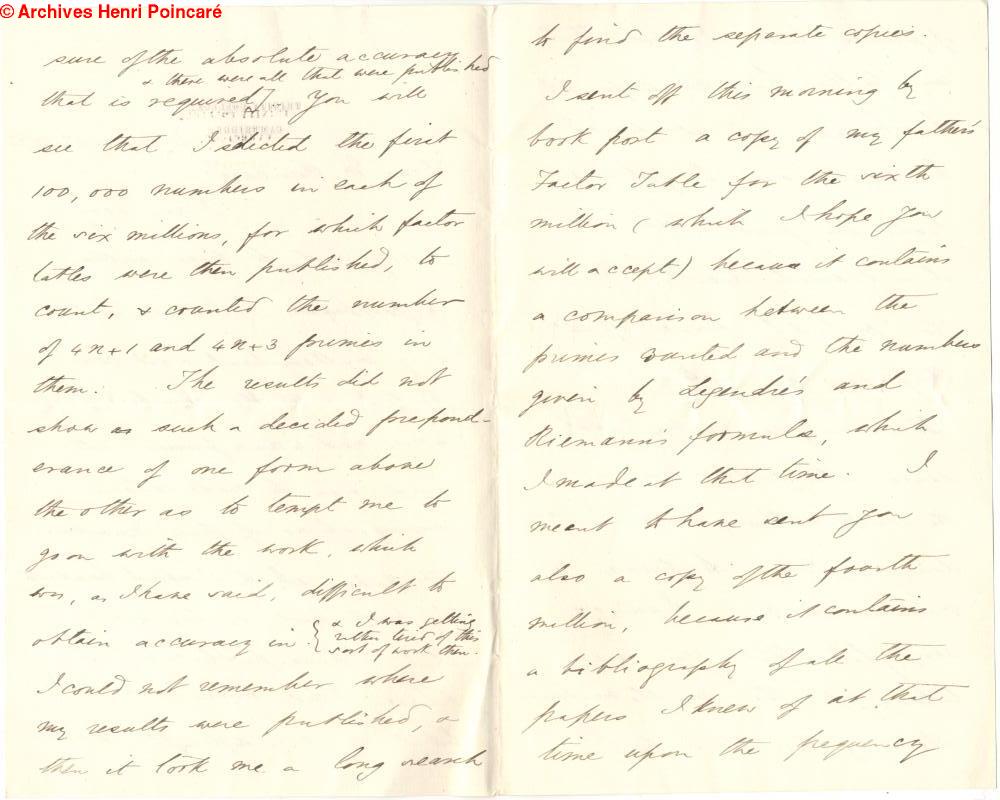 © Archives Henri Poincaré
sure of the absolute accuracy
& these were all that were published
that is required. You will
see that I selected the first
100,000 numbers in each of
the six millions, for which factor
tables were then published, to
count, & counted the number
of 4n+1 and 4n+3 primes in
them. The results did not
show as such a decided prepond-
erance of one form above
the other as to tempt me to
go on with the work, which
was, as I have said, difficult to
obtain accuracy in { & I was getting
rather tired of this
sort of work then.
I could not remember where
my results were published, &
then it took me a long search
to find the separate copies.
I sent off this morning by
book post a copy of my father's
Factor Table for the sixth
million (which I hope you
will accept) because it contains
a comparison between the
primes counted and the numbers
given by Legendre's and
Riemann's formulæ, which
I made at that time. I
meant to have sent you
also a copy of the fourth
million, because it contains
a bibliography of all the
papers I knew of at that
time upon the frequency